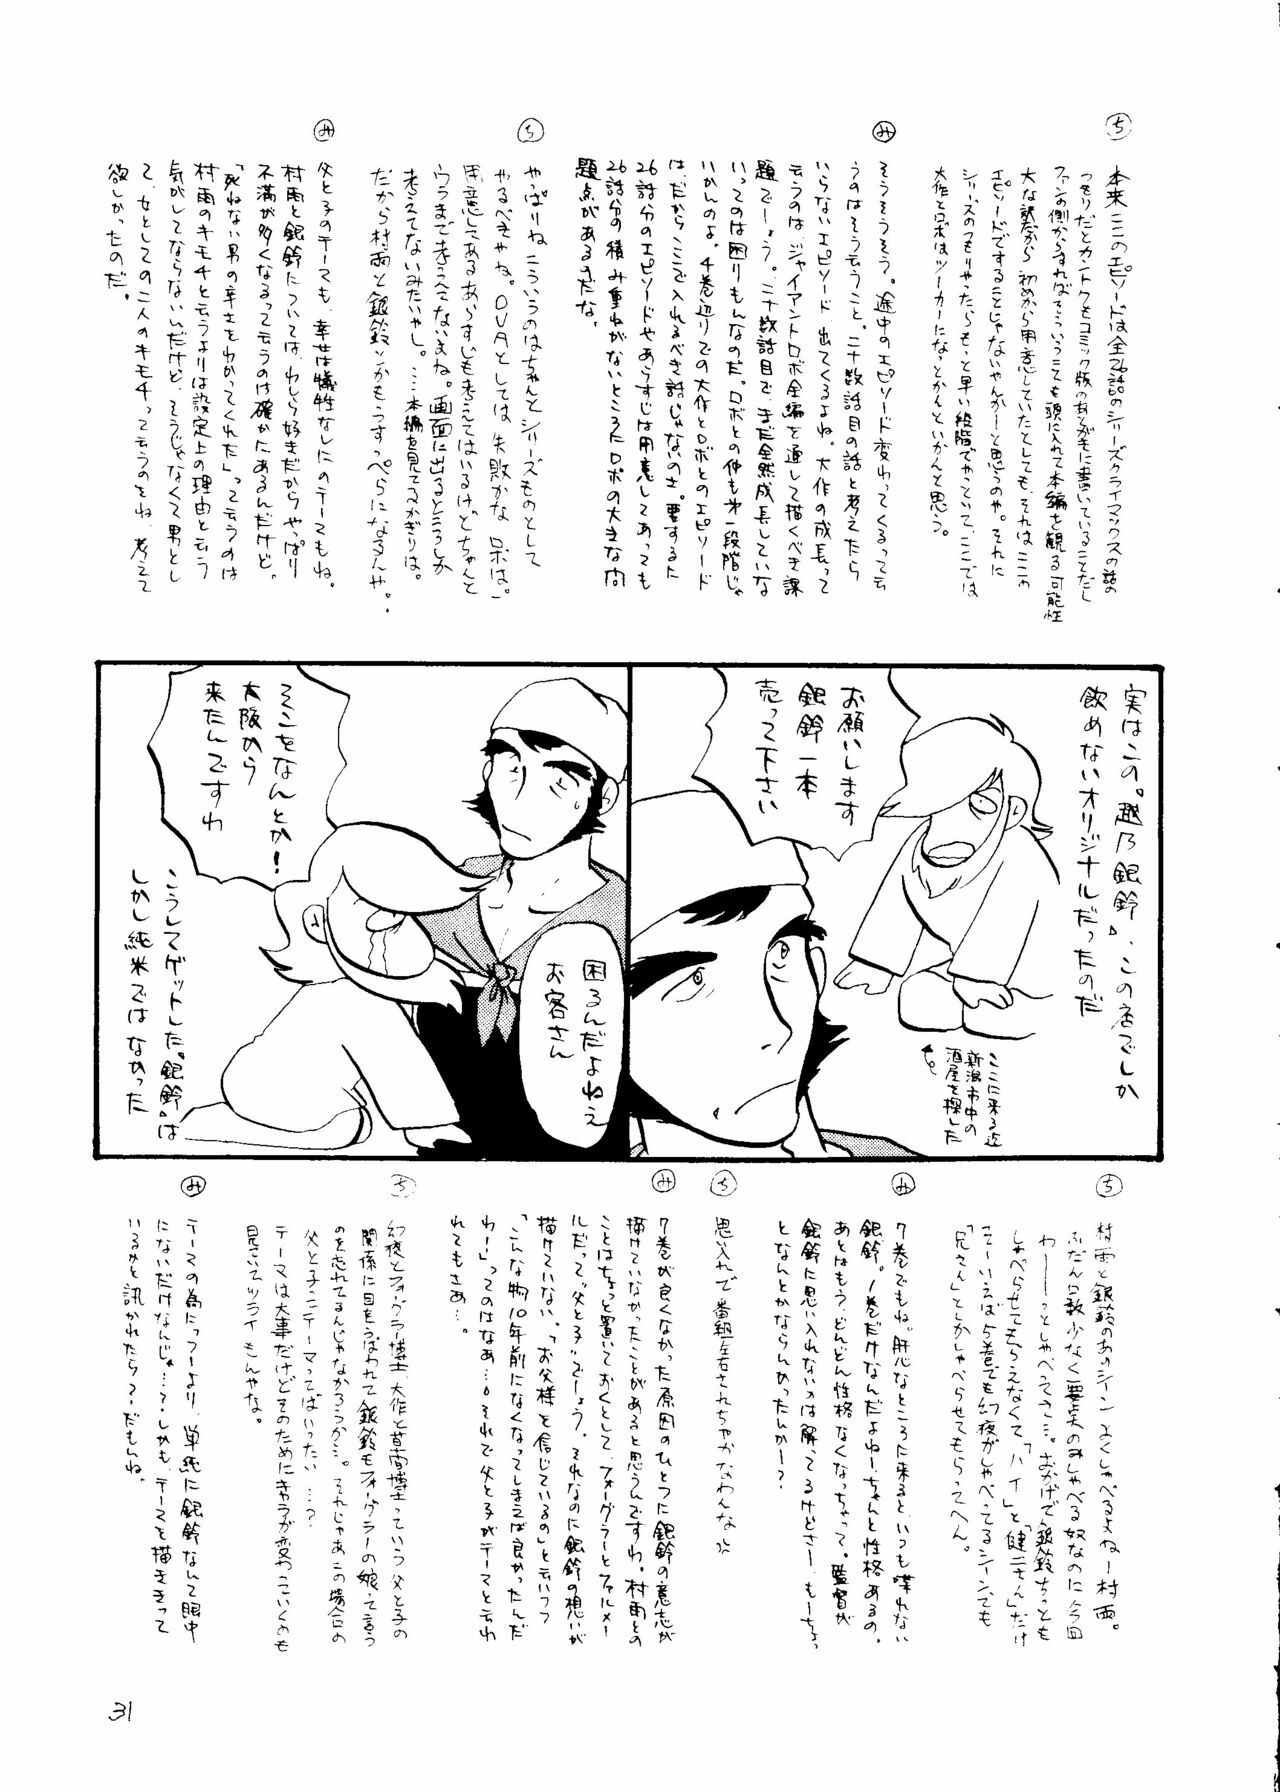 ち
本来ここのエピソードは全26話のシリーズクライマックスの話の
つもりだとカントクもコミック版のあとがきに書いていることだし
ファンの側からすればそういうことも頭に入れて本編を観る可能性
大な訳だから初めから用意していたとしても、それはここの
エピソードですることじゃないやんかーと思うのや。それに
シリーズのつもりやったらもっと早い段階でやっていて、ここでは
大作とロボはツーカーになっとかんといかんと思う。
み
そうそうそう。途中のエピソード変わってくるって云
うのはそう云うこと。二十数話目の話と考えたら
いらないエピソード出てくるよね。大作の成長って
云うのはジャイアントロボ全編を通して描くべき課
題でしょう。二十数話目で、まだ全然成長していな
いってのは困りもんなのだ。ロボとの仲も第一段階じゃ
いかんのよ。4巻辺りでの大作とロボとのエピソード
は、だからここで入れるべき話じゃないのさ。要するに
26話分のエピソードやあらすじは用意してあっても
26話分の積み重ねがないところにロボの大きな問
題点があるのだな。
ち
やっぱりね、こういうのはちゃんとシリーズものとして
やるべきやね。OVAとしては失敗かなロボは。
用意してあるあらすじも考えてはいるけどちゃんと
ウラまで考えてないよね。画面に出るところしか
考えてないみたいやし。…本編を見てるかぎりは。
だから村雨と銀鈴とかもうすっぺらになるんや。
み
父と子のテーマも、幸せは犠牲なしにのテーマもね。
村雨と銀鈴については、わしら好きだからやっぱり
不満が多くなるって云うのは確かにあるんだけど。
「死ねない男の辛さをわかってくれた」って云うのは
村雨のキモチと云うよりは設定上の理由と云う
気がしてならないんだけど、そうじゃなくて男とし
て、女としての二人のキモチって云うのをね、考えて
欲しかったのだ。
実はこの「越乃銀鈴」、この店でしか
飲めないオリジナルだったのだ
お願いします
銀鈴一本
売って下さい
ここに来る迄
新潟市中の
酒屋を探した
そこをなんとか!
大阪から
来たんですわ
困るんだよねえ
お客さん
こうしてゲットした「銀鈴」は
しかし純米ではなかった
ち
村雨と銀鈴のあのシーンよくしゃべるよねー村雨。
ふだん口数少なく要点のみしゃべる奴なのに今回
わーーっとしゃべってさ…。おかげで銀鈴ちっとも
しゃべらせてもらえなくて「ハイ」と「健二さん」だけ
そーいえば5巻でも幻夜がしゃべってるシーンでも
「兄さん」としかしゃべらせてもらってへん。
み
7巻でもね。肝心なところに来るといつも喋れない
銀鈴。1巻だけなんだよねー、ちゃんと性格あるの。
あとはもう、どんどん性格なくなっちゃって。監督が
銀鈴に思い入れないのは解ってるけどさー、もーちょっ
となんとかならんかったんかー?
ち
思い入れで番組左右されちゃかなわんな
み
7巻が良くなかった原因のひとつに銀鈴の意志が
描けていなかったことがあると思うんですわ。村雨との
ことはちょっと置いておくとして、フォーグラーとファルメー
ルだって“父と子”でしょう。それなのに銀鈴の想いが
描けていない。「お父様を信じているの」と云いつつ
「こんな物10年前になくなってしまえば良かったんだ
わー!」ってのはなぁ…。それで父と子がテーマと云わ
れてもさぁ…。
ち
幻夜とフォーグラー博士、大作と草間博士っていう父と子の
関係に目をうばわれて銀鈴もフォーグラーの娘って言う
のを忘れてるんじゃなかろうか…。それじゃあこの場合の
父と子ニテーマってばいったい…?
テーマは大事だけどそのためにキャラが変わっていくのも
見ていてツライもんやな。
み
テーマの為にっつーより、単純に銀鈴なんて眼中
にないだけなんじゃ…?しかも、テーマを描ききって
いるかと訊かれたら?だもんね。
31